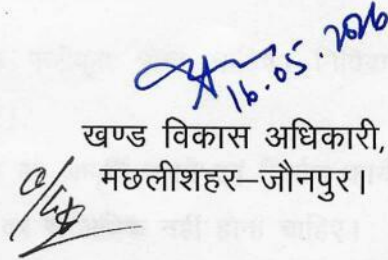 16.05 2026
खण्ड विकास अधिकारी,
मछलीशहर–जौनपुर।